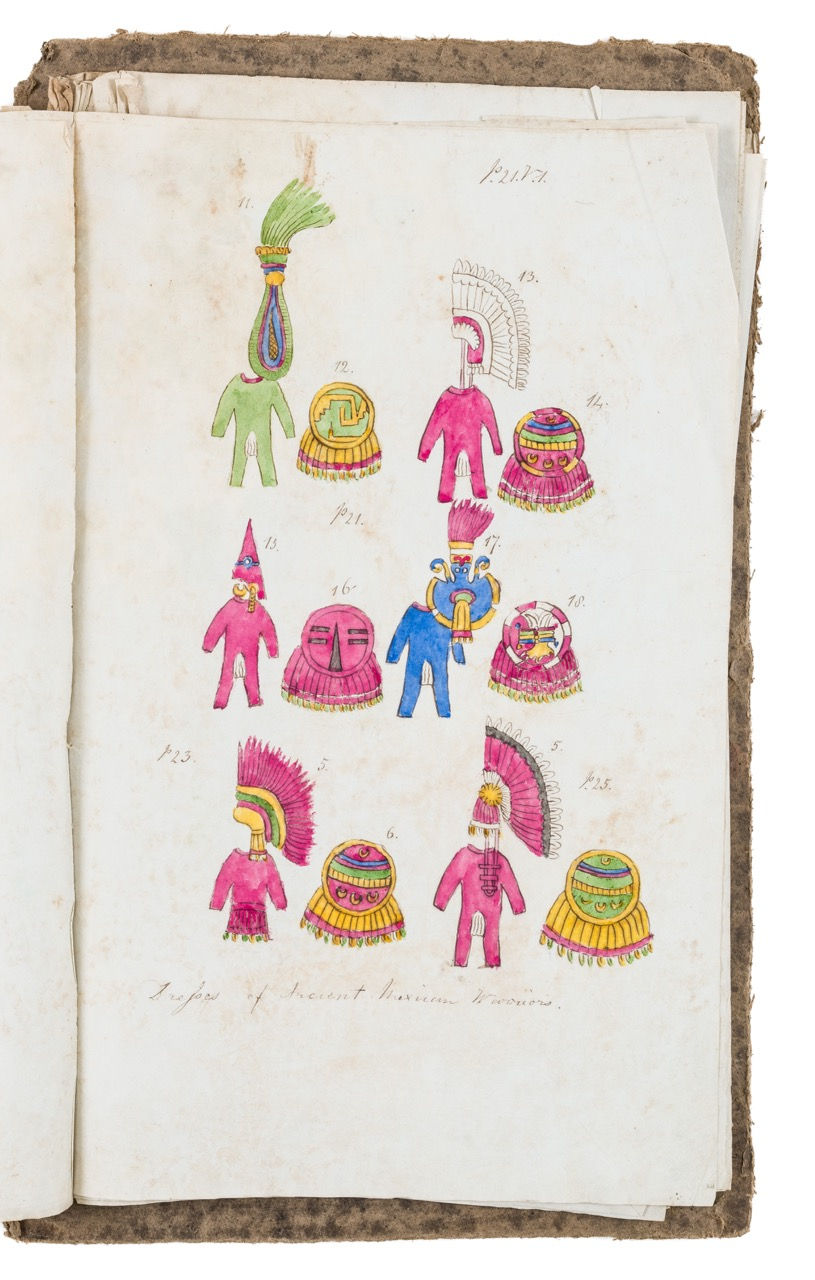 P.21.V.1.
11.
13.
12.
14.
P21.
15.
17.
16
18.
P23.
5.
5.
P.25.
6.
Dresses of Ancient Mexican Warriors.